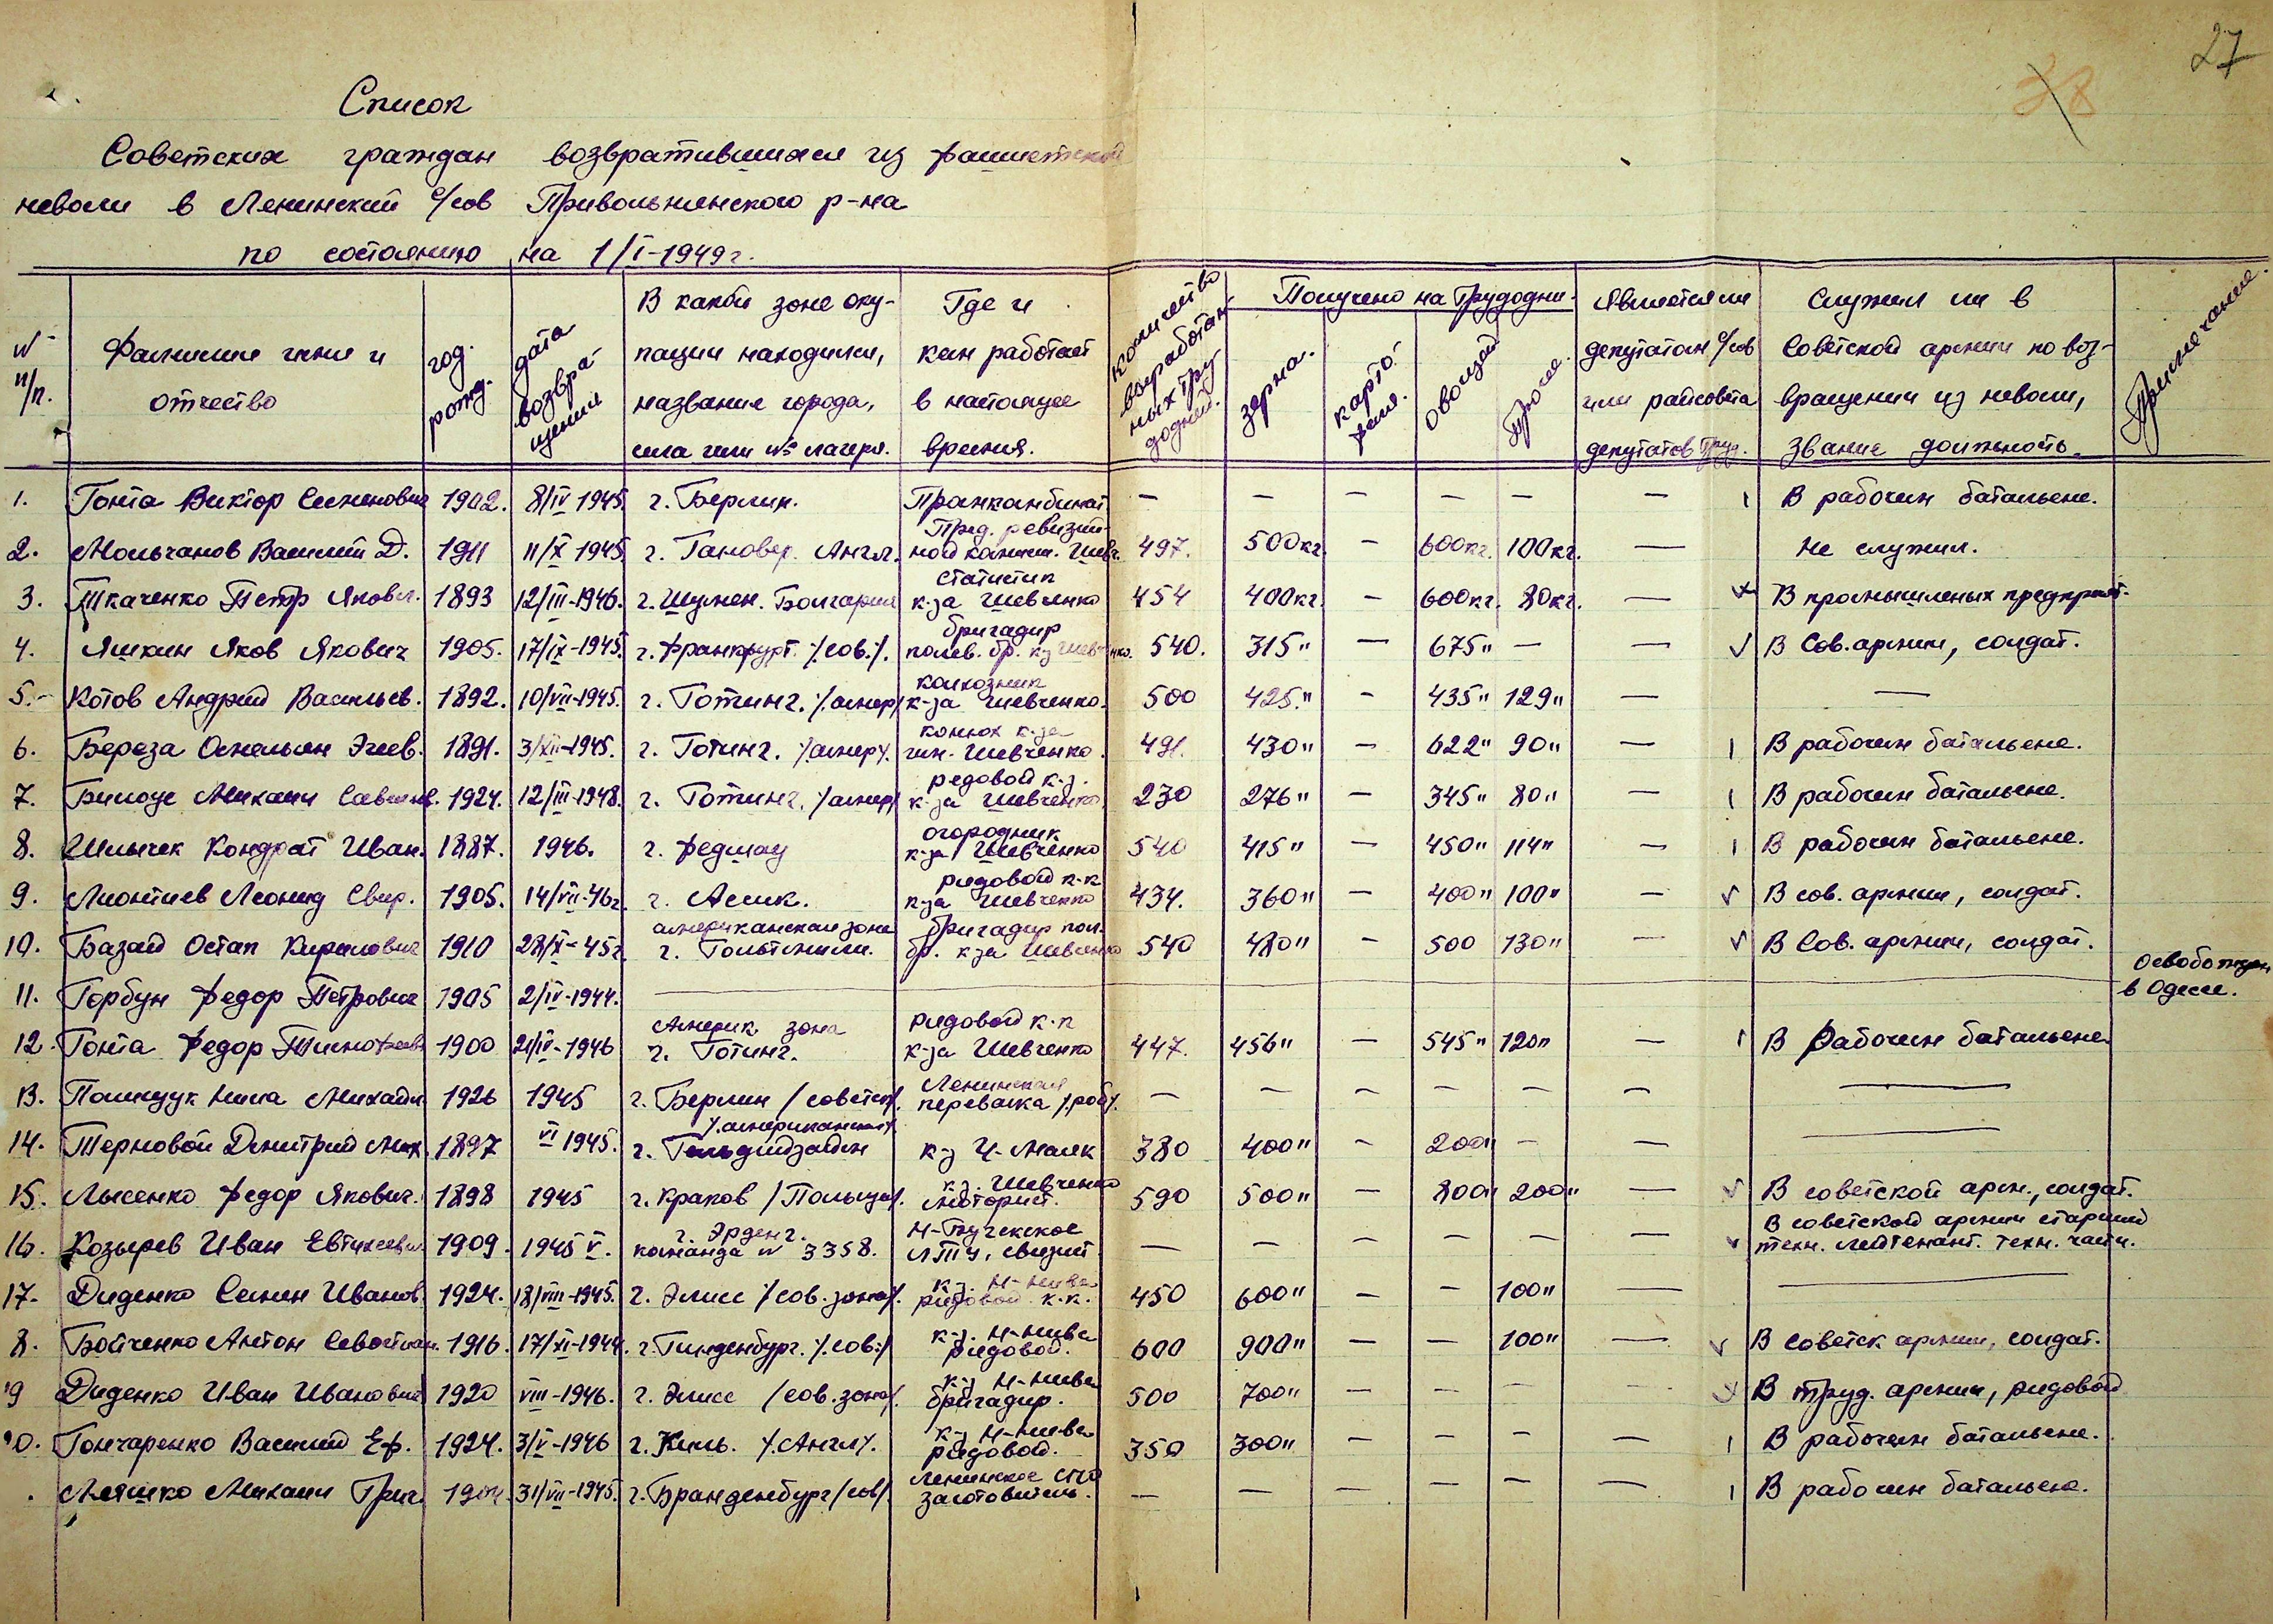 27
38
Список
Советских граждан возвратившихся из фашистской
неволи в Ленинский с/сов Привольнянского р-на
по состоянию на 1/I-1949 г.
№ п/п. Фамилии имя и отчество год рожд. дата возвращения В какой зоне оку- пации находился, название города, села или № лагеря. Где и кем работает в настоящее время. Количество выработан ных тру додней. Получено на трудодни. зерна. карто- феля. овощей Прочие. Является ли депутатом с/сов или райсовета депутатов труд. Служил ли в Советской армии по воз- вращении из неволи, звание должность. Примечание.
1. Гонта Виктор Семенович 1902. 8/IV 1945. г. Берлин. Промкомбинат — — — — — — В рабочем батальене.
2. Мольчанов Василий Д. 1911 11/X 1945 г. Гановер. Англ. Пред. ревизий- ной комис. Шевч. 497. 500кг. — 600кг. 100кг. — не служил.
3. Ткаченко Петр Яковл. 1893 12/III-1946. г. Шумен. Болгария статистик к-за Шевченко 454 400кг. — 600кг. 80кг. — В промышленых предприят.
4. Яшкин Яков Якович 1905. 17/IX-1945. г. Франкфурт. /.сов./. бригадир полев. бр. к-з Шевченко. 540. 315" — 675" — — В Сов. армии, солдат.
5. Котов Андрей Васильев. 1892. 10/VII-1945. г. Готинг. /.амер/ колхозник к-за Шевченко. 500 425." — 435" 129" — —
6. Береза Омельян Эиев. 1891. 3/XII-1945. г. Готинг. /.амер/. конюх к-за им. Шевченко. 491. 430" — 622" 90" — В рабочем батальене.
7. Билоус Михаил Савельев. 1924. 12/III-1948. г. Готинг. /амер/ редовой к-з. к-за Шевченко 230 276" — 345" 80" — В рабочем батальене.
8. Шлычек Кондрат Иван. 1887. 1946. г. Федшау огородник к-за Шевченко 540 415" — 450" 114" — В рабочем батальене.
9. Лионтиев Леонид Свир. 1905. 14/VII-46г. г. Аслик. рядовой к-к к-за Шевченко 434. 360" — 400" 100" — В сов. армии, солдат.
10. Базай Остап Кирилович 1910 28/X-45г. американская зона г. Гольтсмили. бригадир пол. бр. к-за Шевченко 540 480" — 500 130" — В Сов. армии, солдат.
11. Горбун Федор Петрович 1905 2/IV-1944. — — Освобожден в Одессе.
12. Гонта Федор Тимофеев. 1900 21/IV-1946 Америк. зона г. Готинг. рядовой к-к к-за Шевченко 447. 456" — 545" 120" — В Рабочем батальене.
13. Полищук Нина Михайл. 1926 1945 г. Берлин /советск/. Ленинская перевалка /.роб/. — — — — — — —
14. Терновой Дмитрий Мих. 1897 VI 1945. /.американская/. г. Гильдишзайдин к-з Ч-Маяк 380 400" — 200" — — —
15. Лысенко Федор Якович. 1898 1945 г. Краков /Польща/. к-з. Шевченко моторист. 590 500" — 800" 200" — В советской арм., солдат.
16. Козырев Иван Евтихеевич 1909. 1945 V. г. Эрденг. команда № 3358. Н-Бугское ЛТПЧ, связист — — — — — — В советской армии старший техн. лейтенант. техн. части.
17. Диденко Семен Иванов. 1924. 18/VIII-1945. г. Элисс /сов. зона/. к-з. Н-Нива рядовой к.к. 450 600" — — 100" — —
8. Бойченко Антон Севостиан. 1916. 17/XI-1944. г. Гинденбург. /.сов:/ к-з. Н-Нива рядовой. 600 900" — — 100" — В Советск армии, солдат.
19 Диденко Иван Иванович 1920 VIII-1946. г. Элисс /сов. зона/. к-з Н-Нива бригадир. 500 700" — — — — В труд. армии, рядовой
20. Гончаренко Василий Еф. 1924. 3/V-1946 г. Киль. /.Англ/. к-з Н-Нива рядовой. 350 300" — — — — В рабочем батальене.
. Мляшко Михаил Григ. 1904. 31/VII-1945. г. Бранденбург /сов/. Ленинское сто заготовитель. — — — — — — В рабочем батальене.